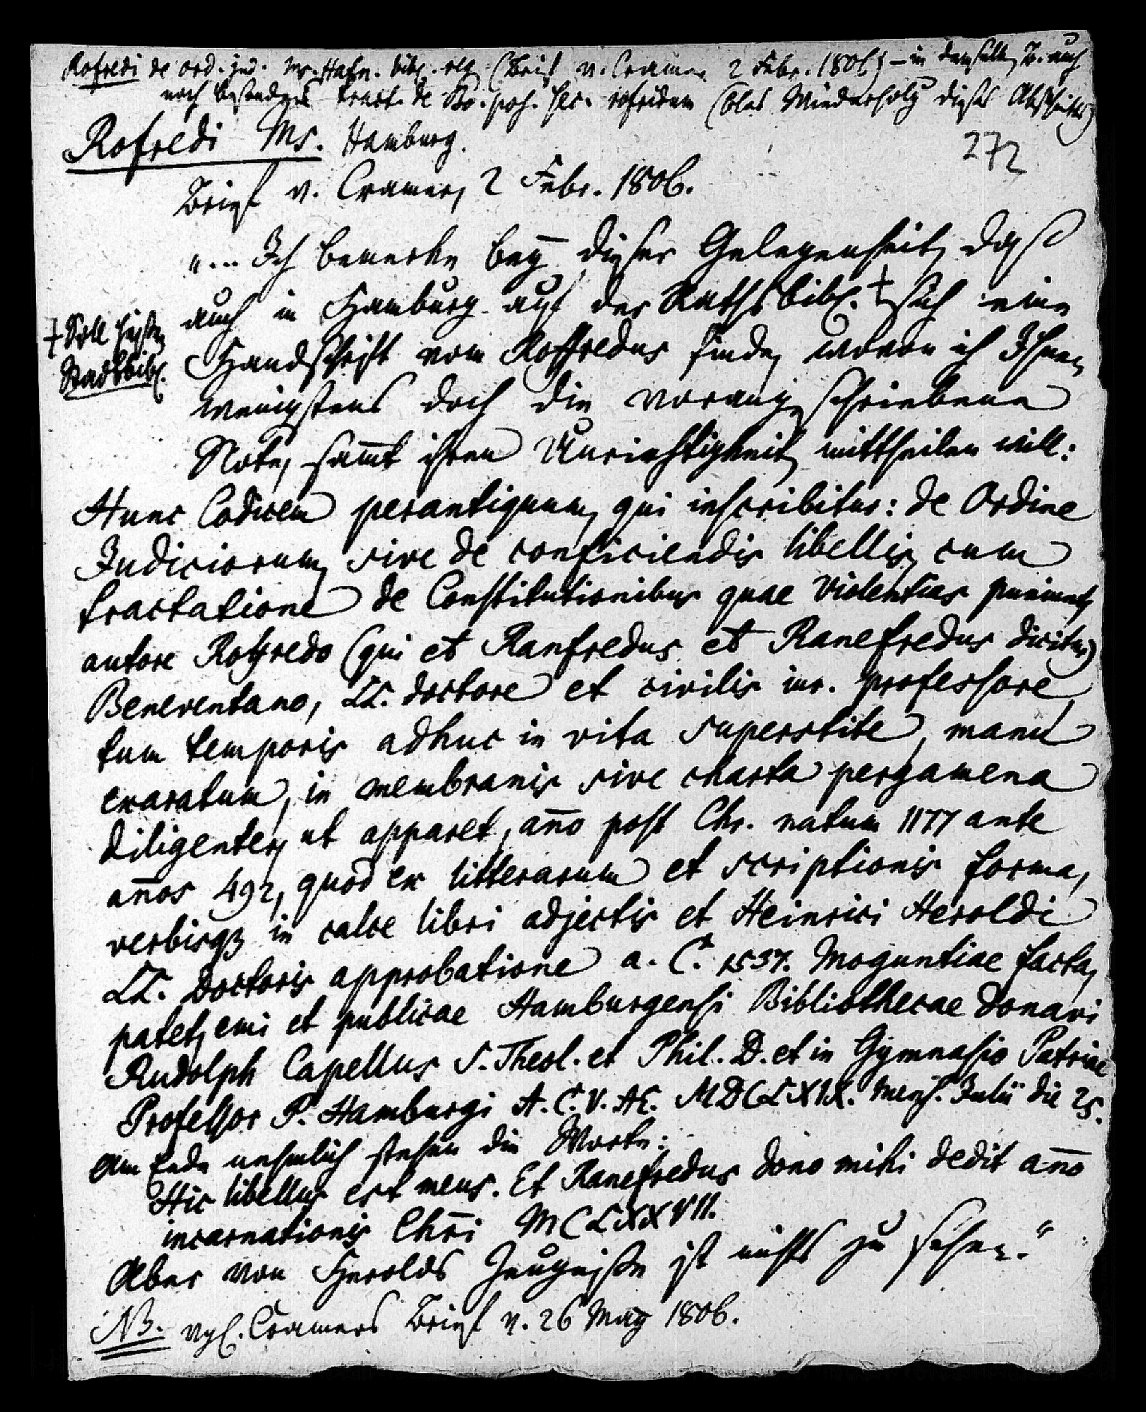 Rofredi de ord. jud. Ms. Hafn. bibl. reg. (Brief v. Cramer 2 Febr. 1806) – in demselben Br. auch
noch besonders tract. de Bo. poss. sec. rofridum (blos Wiederholg dieses Abschnittes)
Rofredi Ms. Hamburg.
272
Brief v. Cramer, 2 Febr. 1806.
"... Ich bemerke bey dieser Gelegenheit, daß
auch in Hamburg auf der Rathsbibl. + sich eine
+ Soll heißen
Stadtbibl.
Handschrift vom Roffredus finde, wovon ich Ihnen
wenigstens doch die vorangeschriebene
Note, samt ihren Unrichtigkeit, mittheilen will:
Hunc Codicem perantiquum, qui inscribitur: de Ordine
Judiciorum, sive de conficiendis libellis, cum
tractatione de Constitutionibus quae violentias puniunt,
autore Roffredo (qui et Ranfredus et Ranefredus dicitur)
Beneventano, LL. doctore et civilis iur. professore,
tum temporis adhuc in vita superstite, manu
exaratum, in membranis sive charta pergamena
diligenter, ut apparet, año post Chr. natum 1177 ante
años 492, quod ex litterarum et scriptionis forma,
verbisqꝫ in calce libri adjectis et Heinrici Heroldi
LL. Doctoris approbatione a. C. 1537. Moguntiae facta,
patet, emi et publicae Hamburgensi Bibliothecae donavi
Rudolph Capellus S. Theol. et Phil. D. et in Gymnasio Patriae
Professor P. Hamburgi A. C. V. AE. MDCLXIX. Mens. Julii die 25.
Am Ende nehmlich stehen die Worte:
Hic libellus est meus. Et Ranefredus dono mihi dedit año
incarnationis Chr̄i MCLXXVII.
Aber von Herolds Zeugniße ist nichts zu sehen."
NB. vgl. Cramers Brief v. 26 May 1806.